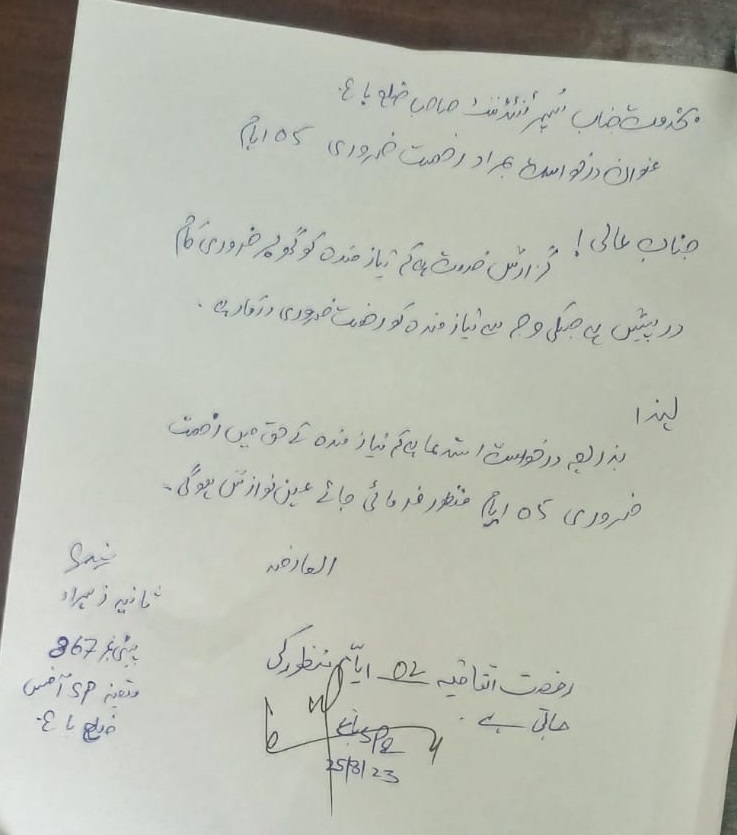 بخدمت جناب سپرنٹنڈنٹ صاحب ضلع باغ۔
عنوان درخواست بمراد رخصت ضروری 05 ایام
جناب عالی!
گزارش خدمت ہے کہ نیاز مندہ کو گھر پر ضروری کام
درپیش ہے جسکی وجہ سے نیاز مندہ کو رخصت ضروری درکار ہے۔
لہذا
بذریعہ درخواست استدعا ہے کہ نیاز مندہ کے حق میں رخصت
ضروری 05 ایام منظور فرمائی جائے عین نوازش ہوگی۔
العارضہ
ثانیہ زہراء
پیٹی نمبر 867
متعینہ SP آفس
ضلع باغ۔
رخصت اتفاقیہ 02 ایام منظور کی
جاتی ہے۔
SP باغ
25/8/23